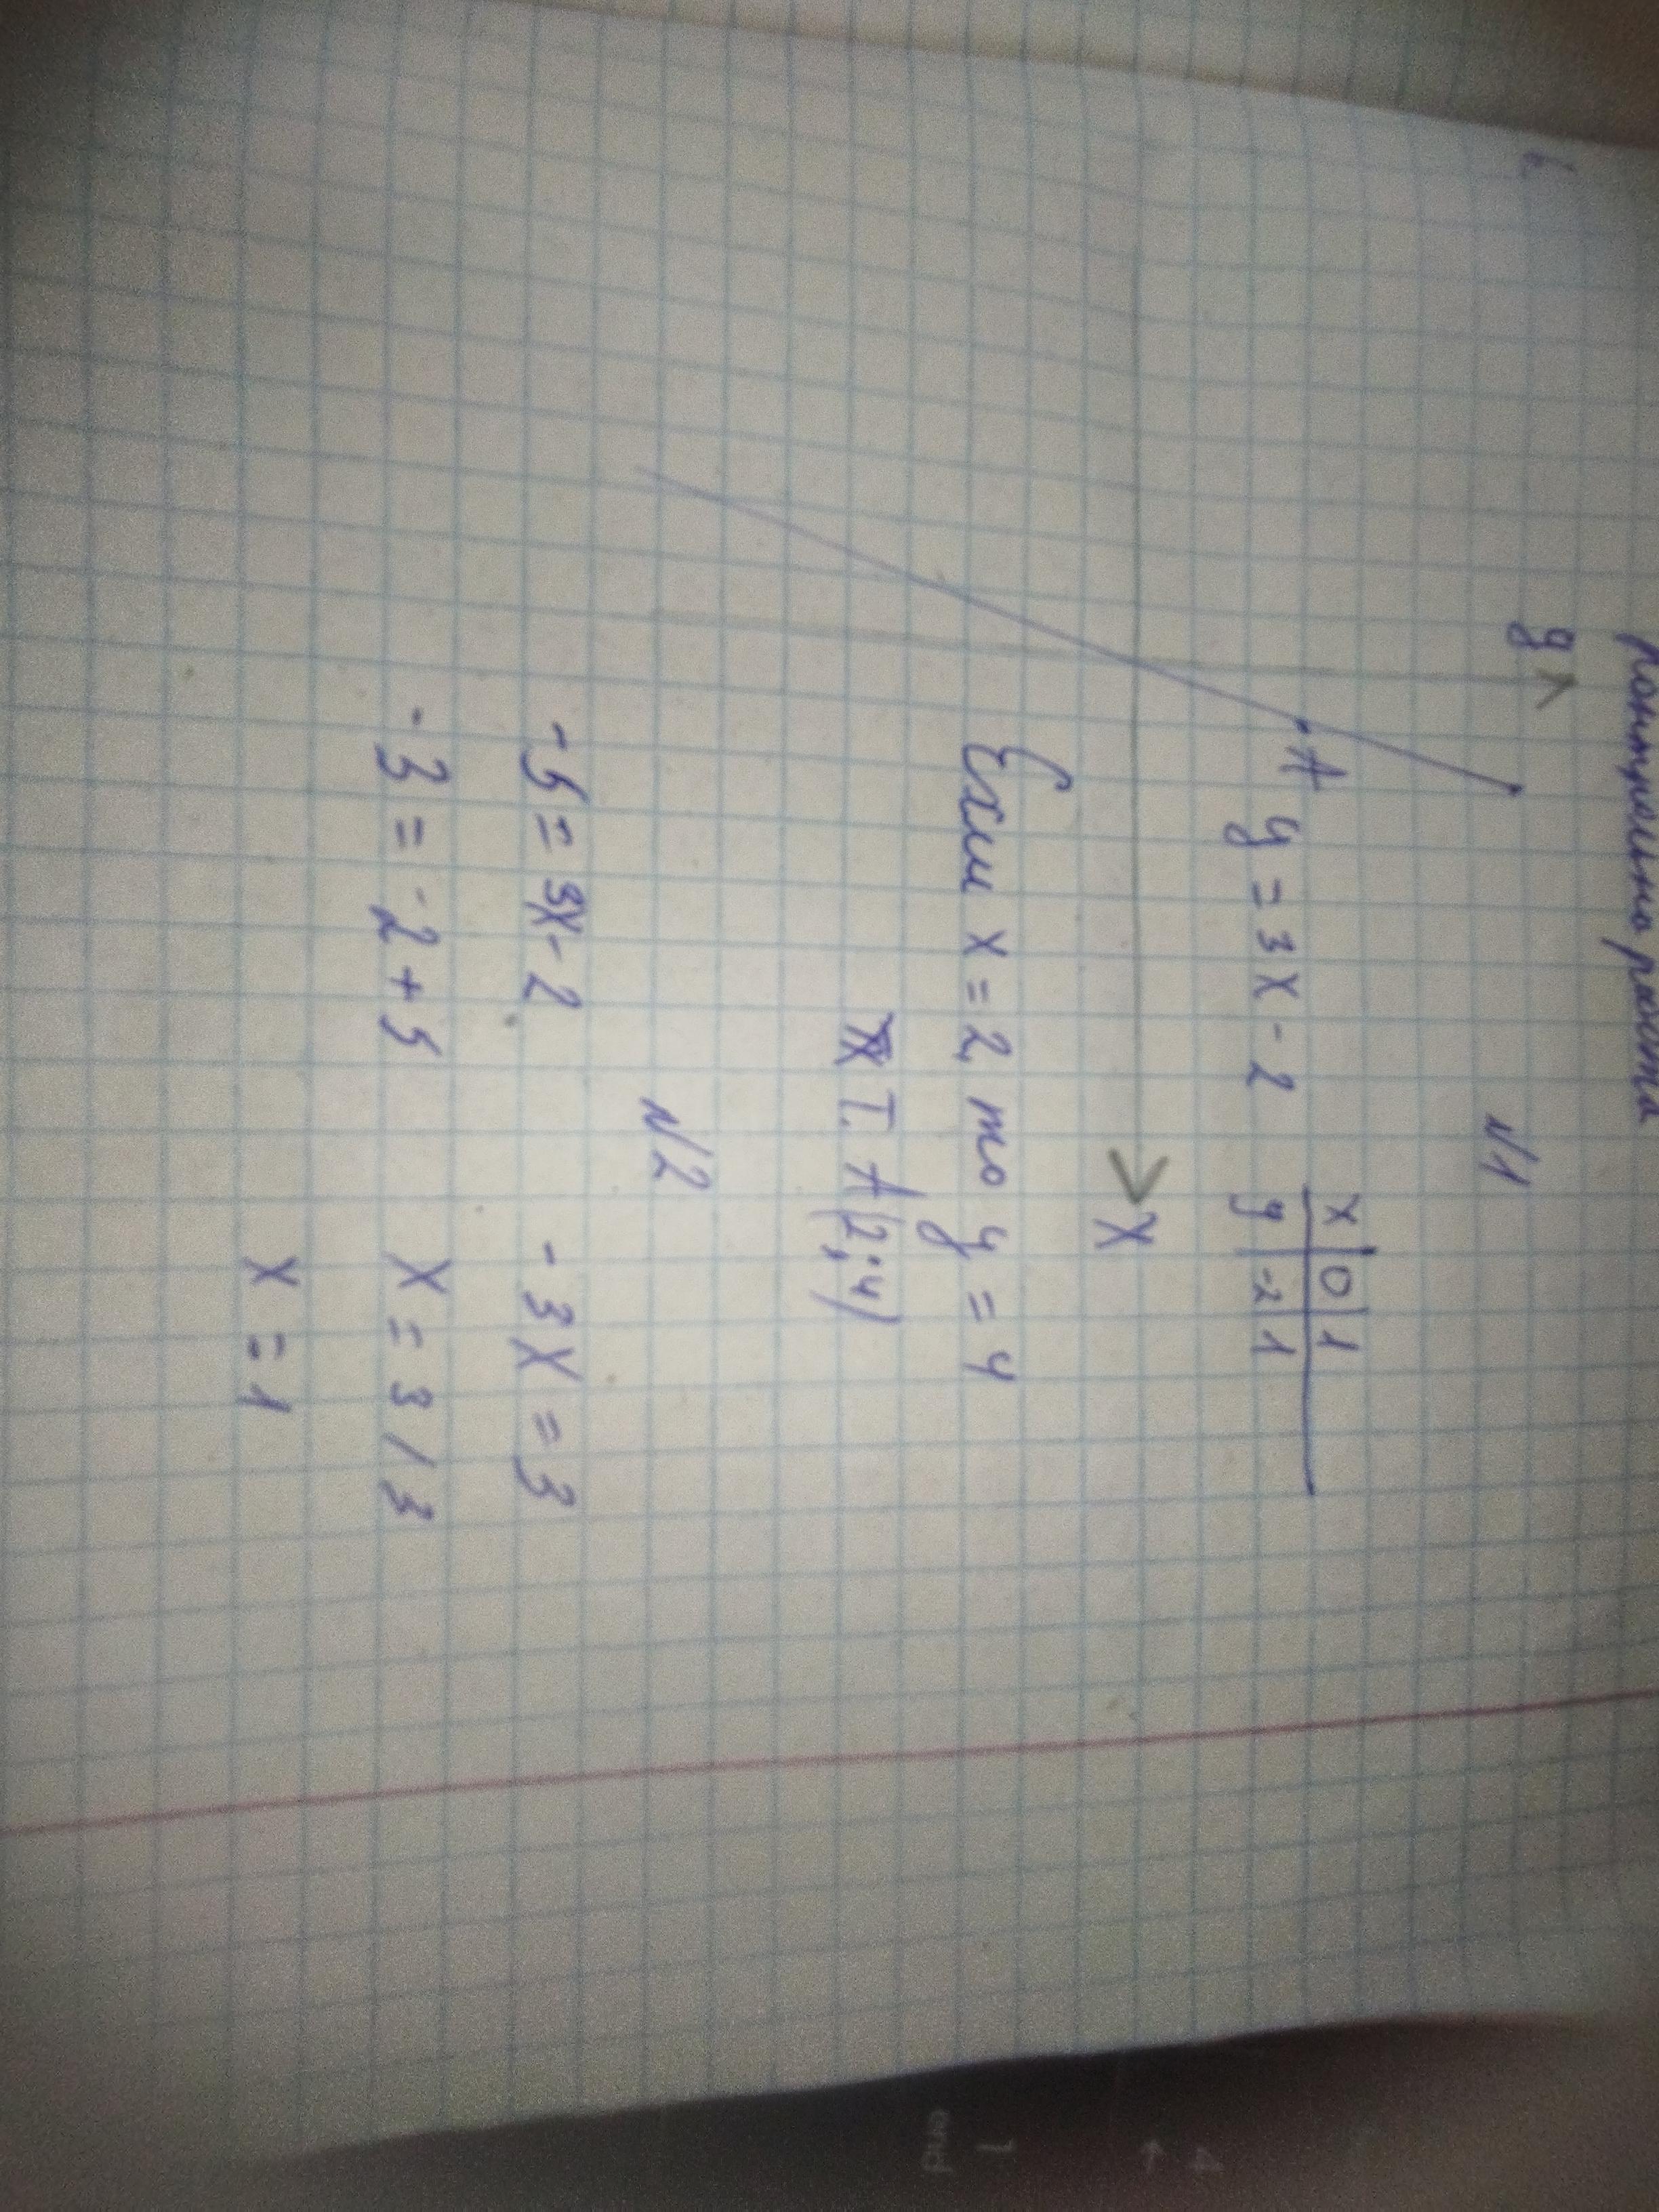 Контрольно работа
N1
y
A
y = 3x - 2
x 0 1
y -2 1
x
Если x = 2, то y = 4
Т. A (2; 4)
N2
-5 = 3x - 2
-3x = 3
-3 = -2 + 5
x = 3 / 3
x = 1